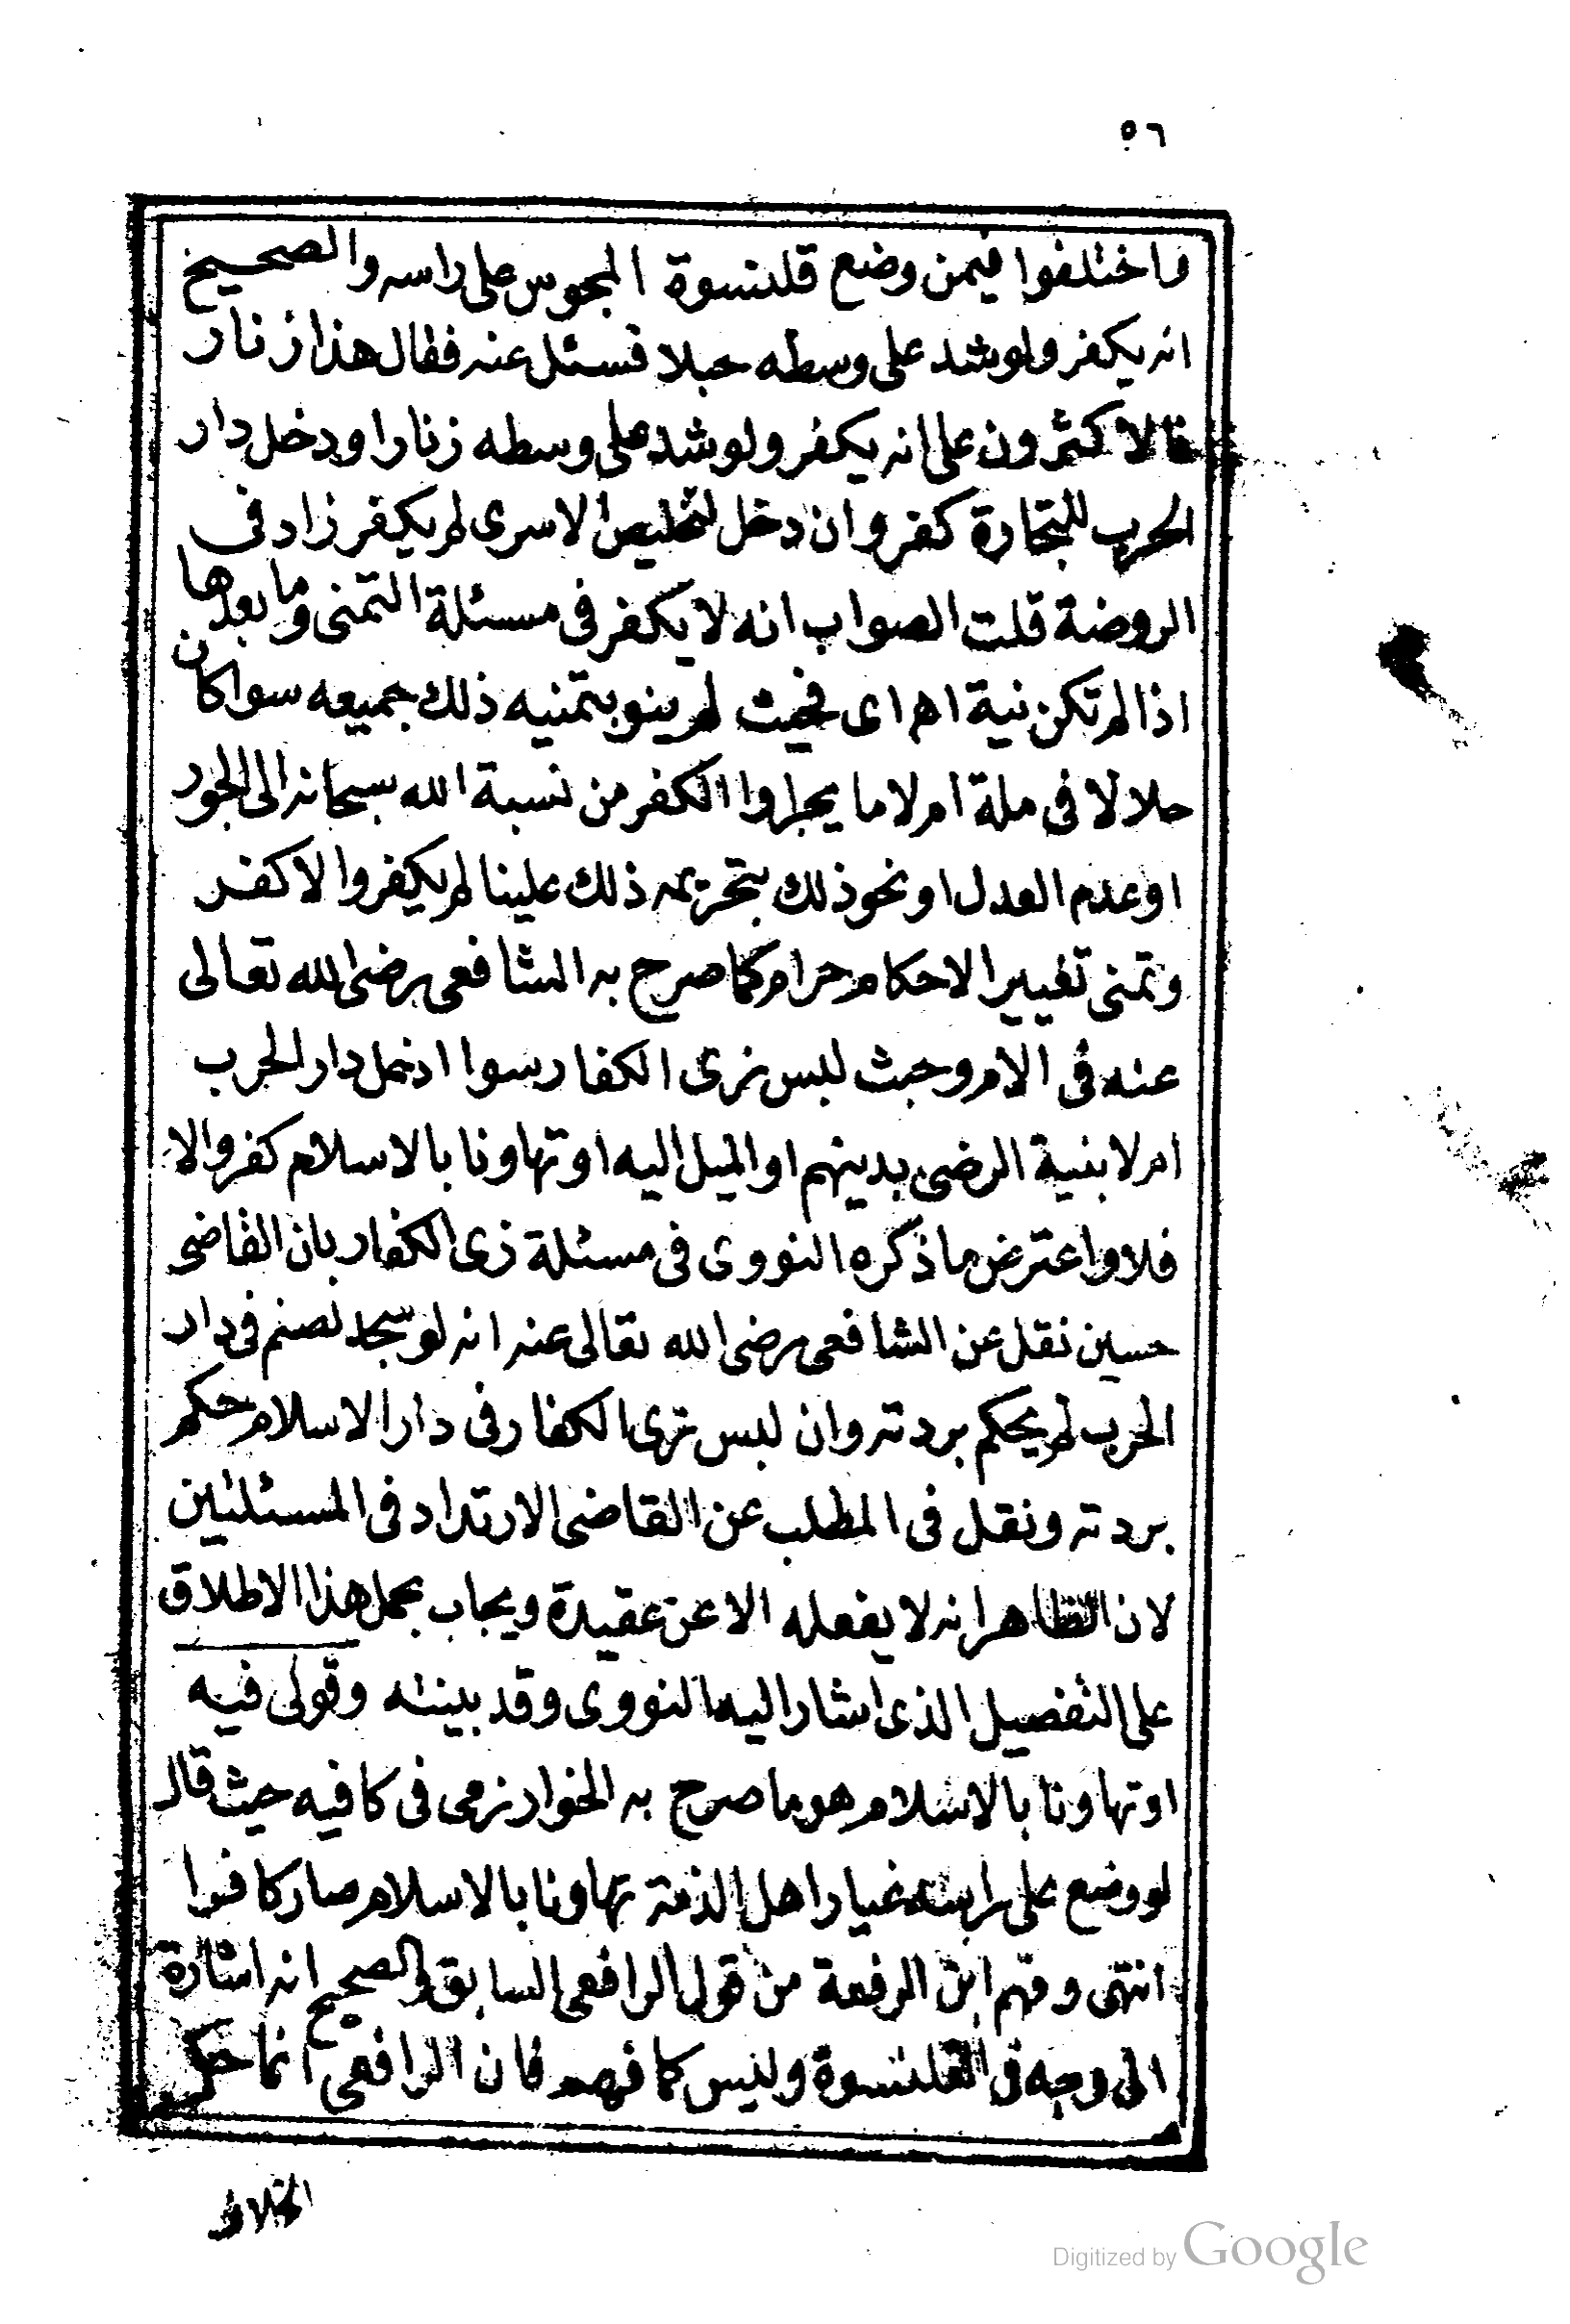 ٥٦
واختلفوا فيمن وضع قلنسوة المجوس على راسه والصحيح
انه يكفر ولو شد على وسطه حبلا فسئل عنه فقال هذا زنار
فالاكثرون على انه يكفر ولو شد على وسطه زنارا ودخل دار
الحرب للتجارة كفر وان دخل لتخليص الاسرى لم يكفر زاد في
الروضة قلت الصواب انه لا يكفر في مسئلة التمنى وما بعدها
اذا لم تكن نية اهـ اى فحيث لم ينو بتمنيه ذلك جميعه سوا كان
حلالا في ملة ام لا ما يجرا والكفر من نسبة الله سبحانه الى الجور
او عدم العدل او نحو ذلك بتحريمه ذلك علينا لم يكفر والا كفر
وتمنى تغيير الاحكام حرام كما صرح به الشافعى رضى الله تعالى
عنه في الام وحيث لبس زى الكفار سوا ادخل دار الحرب
ام لا بنية الرضى بدينهم او الميل اليه او تهاونا بالاسلام كفر والا
فلا واعترض ما ذكره النووى في مسئلة زى الكفار بان القاضى
حسين نقل عن الشافعى رضى الله تعالى عنه انه لو سجد لصنم في دار
الحرب لم يحكم بردته وان لبس زى الكفار في دار الاسلام حكم
بردته ونقل في المطلب عن القاضى الارتداد في المسئلتين
لان الظاهر انه لا يفعله الا عن عقيدة ويجاب بحمل هذا الاطلاق
على التفصيل الذى اشار اليه النووى وقد بينته وقولى فيه
او تهاونا بالاسلام هو ما صرح به الخوارزمى في كافيه حيث قال
لو وضع على راسه غيار اهل الذمة تهاونا بالاسلام صار كافرا
انتهى وفهم ابن الرفعة من قول الرافعى السابق والصحيح انه اشارة
الى وجه في القلنسوة وليس كما فهم فان الرافعى انما حكى
الخلاف
Digitized by Google